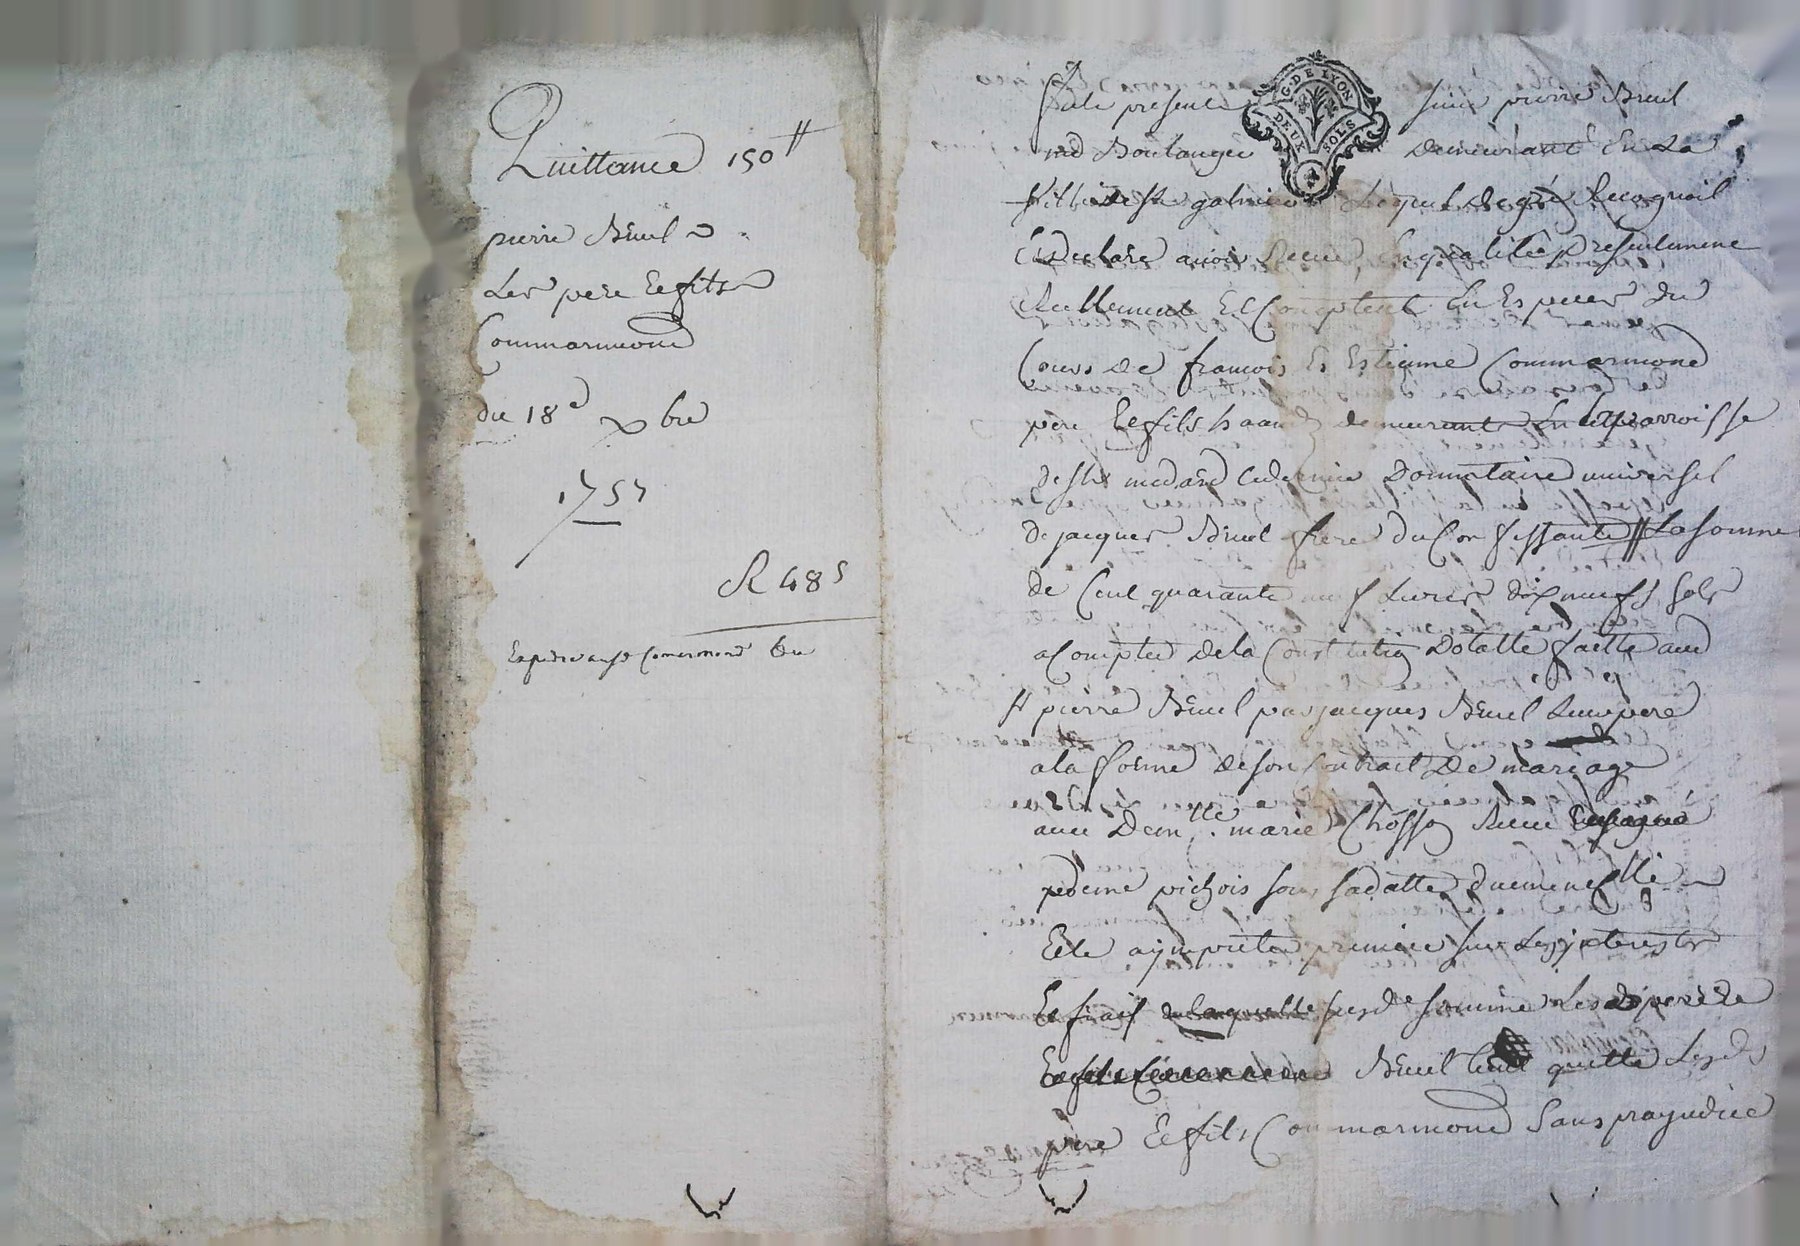 Quittance 150 ₶
pierre Breul
Les pere Et fils
Commarmond
du 18e xbre
1757
R 48 s
G. DE LYON
DEUX SOLS
fut present sieur pierre Breul
md Boulanger demeurant En La
ville de st galmier Lequel de gré Recognoit
Et declare avoir Receu En qualité presentement
Reellement Et Comptent En Especes du
Cours de francois Et Estienne Commarmond
pere Et fils demeurant En parroisse
de st medard donnataire universel
de jacques Breul frere du Confessant // La somme
de Cent quarante neuf Livres dix neuf sols
a Compter de la Constitution dotalle faitte aud
pierre Breul par jacques Breul Leur pere
a la forme de son Contrait de mariage
avec Demlle marie Receu
sous sa datte
Et a imputer premier sur Les interests
Et frais de laquelle susde somme Les pere
Et fils Breul quitte Lesds
pere Et fils Commarmond Sans prejudice